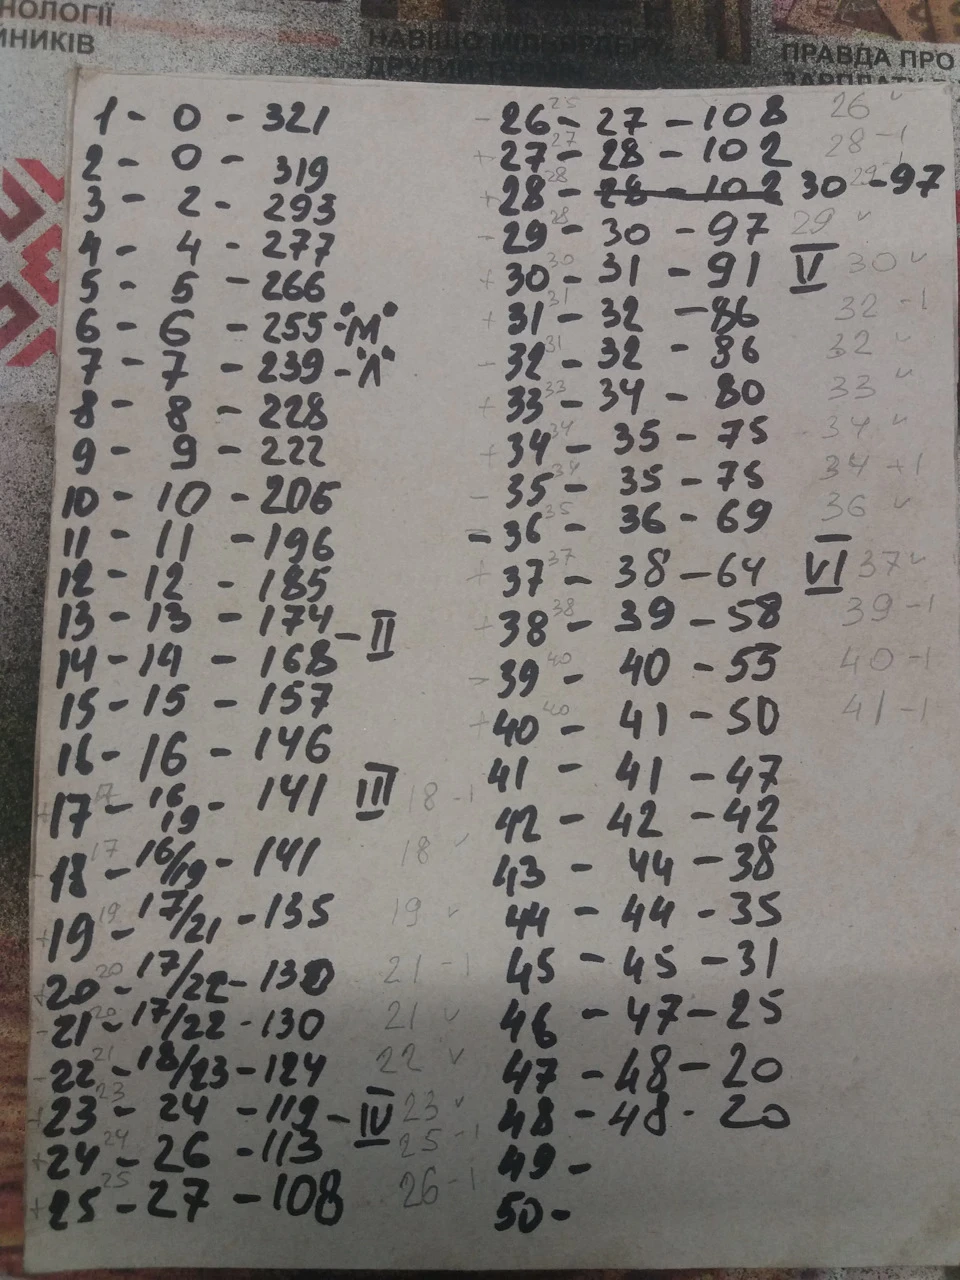 НОЛОГІЇ
НИКІВ
НАВІЩО МІЛЬЯРДЕРУ
ДРУГИЙ
ПРАВДА ПРО
ЗАРПЛАТУ
1 - 0 - 321
2 - 0 - 319
3 - 2 - 293
4 - 4 - 277
5 - 5 - 266
6 - 6 - 255 - "М"
7 - 7 - 239 - "Л"
8 - 8 - 228
9 - 9 - 222
10 - 10 - 206
11 - 11 - 196
12 - 12 - 185
13 - 13 - 174 - II
14 - 14 - 168
15 - 15 - 157
16 - 16 - 146
+ 17 - 17 16 19 - 141 III 18 -1
18 - 17 16/19 - 141 18 v
+ 19 - 19 17/21 - 135 19 v
+ 20 - 20 17/22 - 130 21 -1
- 21 - 20 17/22 - 130 21 v
- 22 - 21 18/23 - 124 22 v
+ 23 - 23 24 - 119 - IV 23 v
+ 24 - 24 26 - 113 25 -1
+ 25 - 25 27 - 108 26 -1
- 26 - 25 27 - 108 26 v
+ 27 - 27 28 - 102 28 -1
+ 28 - 28 28 - 102 30 - 97 29 v
- 29 - 28 30 - 97 29 v
+ 30 - 30 31 - 91 V 30 v
+ 31 - 31 32 - 86 32 -1
- 32 - 31 32 - 86 32 v
+ 33 - 33 34 - 80 33 v
+ 34 - 34 35 - 75 34 v
- 35 - 34 35 - 75 34 +1
- 36 - 35 36 - 69 36 v
+ 37 - 37 38 - 64 VI 37 v
+ 38 - 38 39 - 58 39 -1
- 39 - 40 40 - 55 40 -1
+ 40 - 40 41 - 50 41 -1
41 - 41 - 47
42 - 42 - 42
43 - 44 - 38
44 - 44 - 35
45 - 45 - 31
46 - 47 - 25
47 - 48 - 20
48 - 48 - 20
49 -
50 -